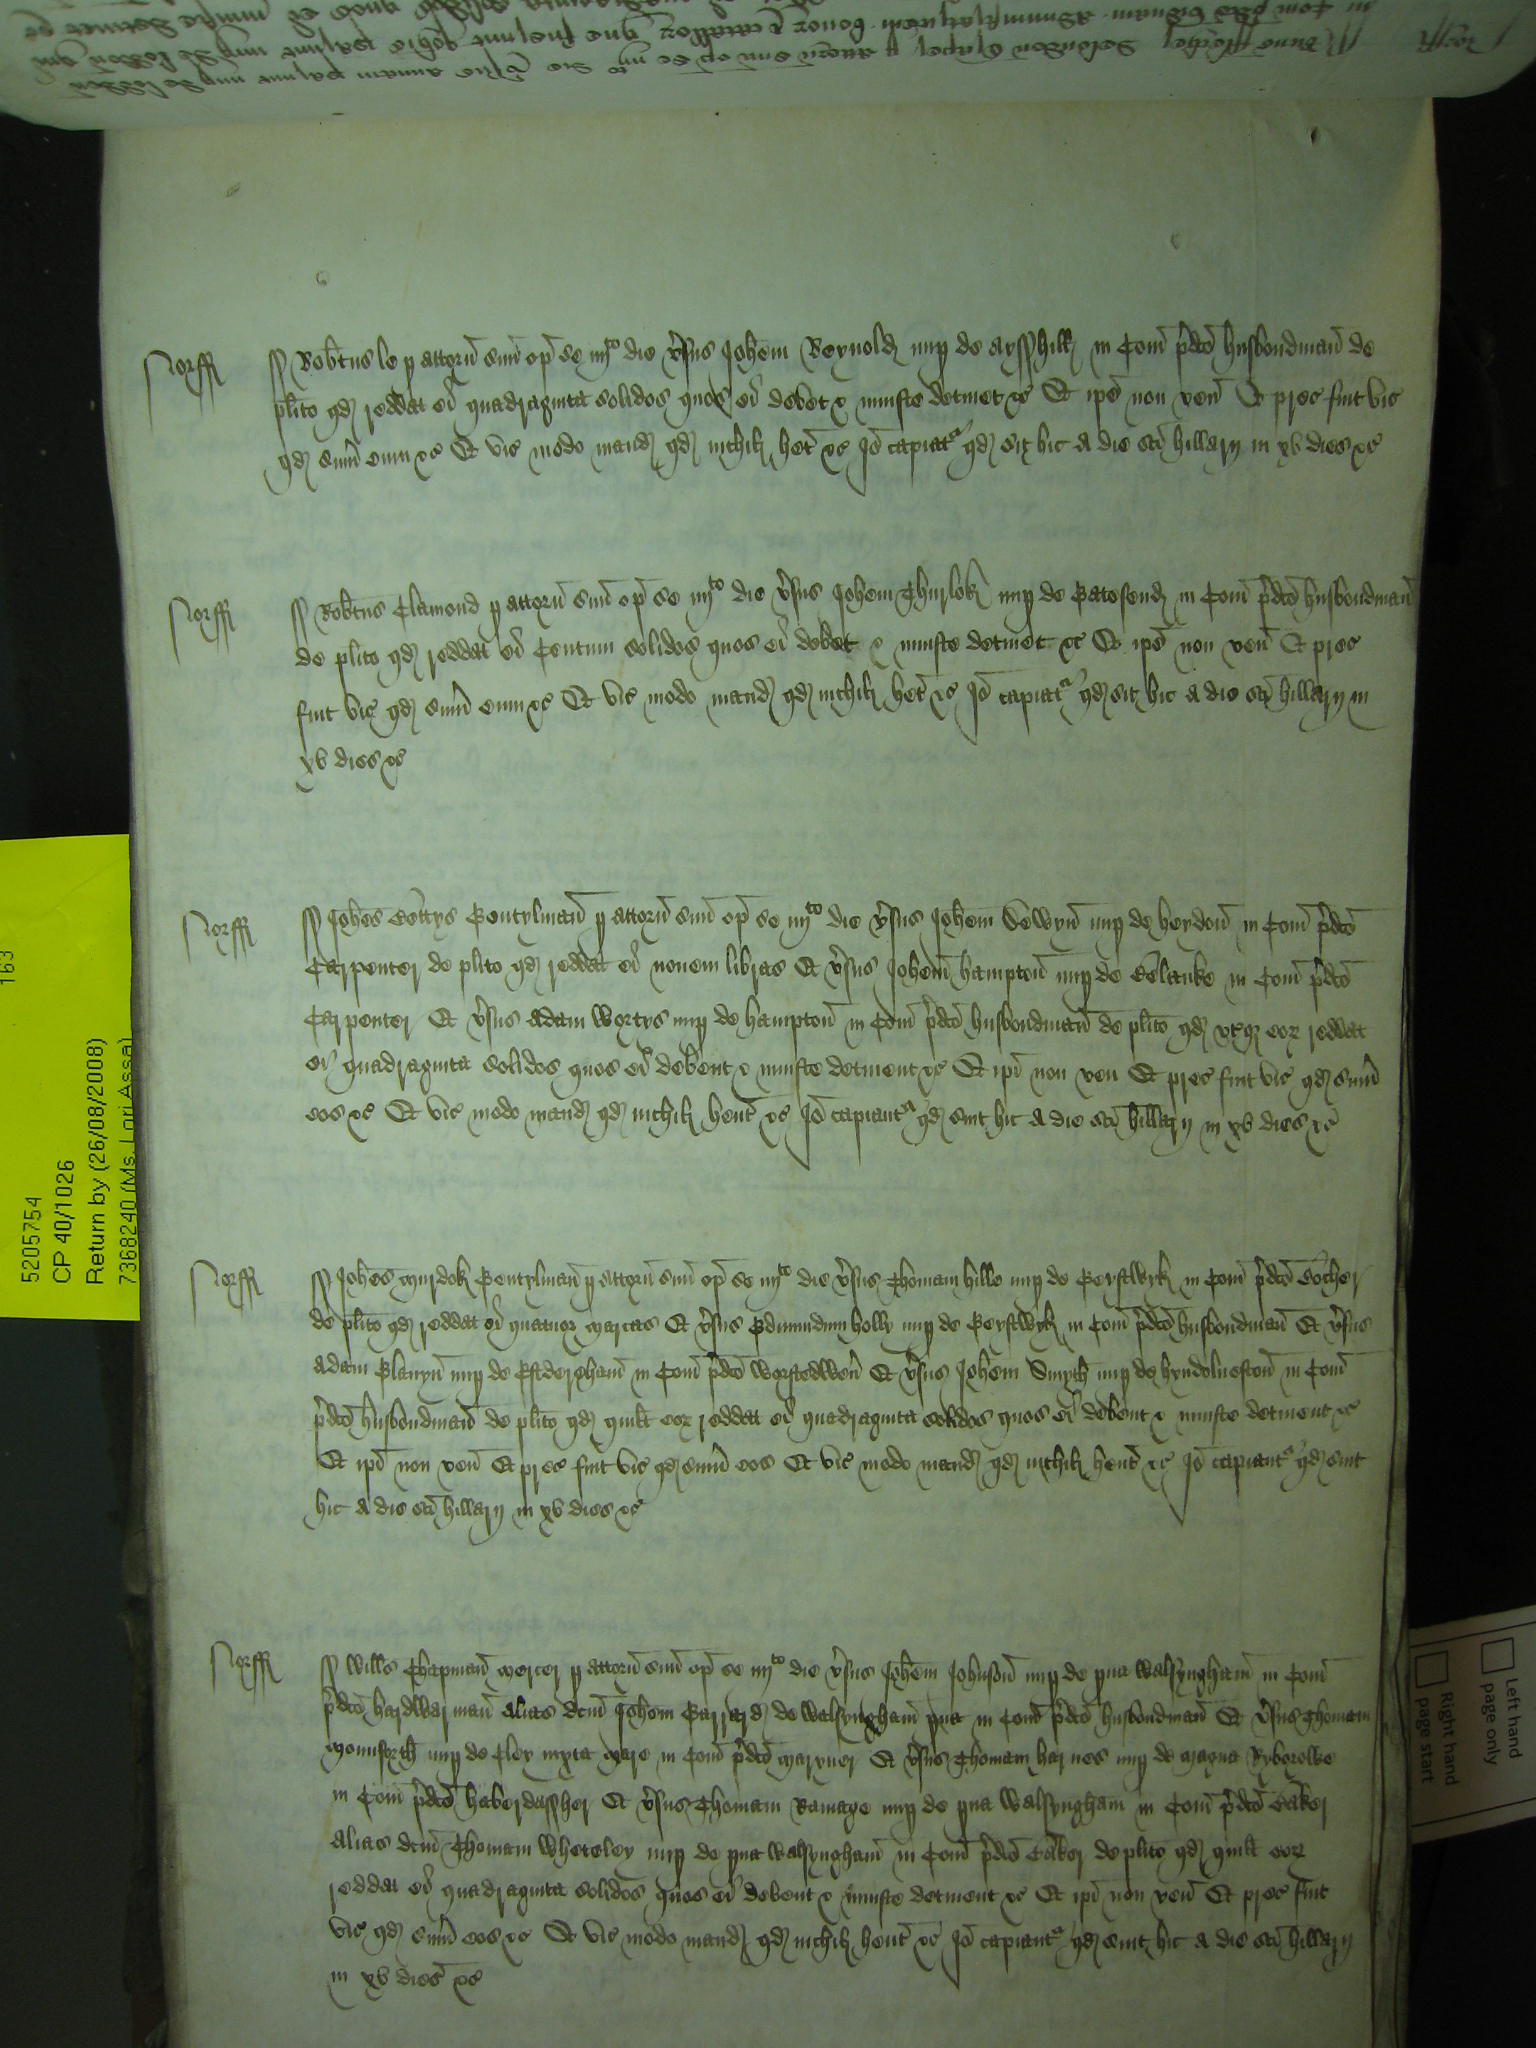 Norff
Rob̄tus le p attorñ suū op̄ se iiijto die v̄sus Joh̄em Reynold nup de in Com̄ p̄dco husbondman̄ de
plīto qd reddat ei quadraginta solidos quos ei debet & iniuste detinet &c Et ip̄e non ven̄ Et prec fuit vic
qd sum̄ eum &c Et vic modo mand qd nichil het &c Jō capiatr qd sit hic a die sc̄i hillarij in xv dies &c
Norff
Rob̄tus Clamond p attorñ suū op̄ se iiijto die v̄sus Joh̄em Thurlok nup de in Com̄ p̄dco husbondman̄
de plīto qd reddat ei Centum solidos quos ei debet & iniuste detinet &c Et ip̄e non ven̄ Et prec
fuit vic qd sum̄ eum &c Et vic modo mand qd nichil het &c Jō capiatr qd sit hic a die sc̄i hillarij in
xv dies &c
Norff
Joh̄es Bettys Gentylman̄ p attorñ suū op̄ se iiijto die v̄sus Joh̄em nup de heydon̄ in Com̄ p̄dco
Carpenter de plīto qd reddat ei nouem libras Et v̄sus Joh̄em hampton̄ nup de in Com̄ p̄dco
Carpenter Et v̄sus Adam nup de hampton̄ in Com̄ p̄dco husbondman̄ de plīto qd vtq eor reddat
ei quadraginta solidos quos ei debent & iniuste detinent &c Et ip̄i non ven Et prec fuit vic qd sum̄
eos &c Et vic modo mand qd nichil hent &c Jō capiantr qd sint hic a die sc̄i hillarij in xv dies &c
Norff
Joh̄es Murdok Gentylman̄ p attorñ suū op̄ se iiijto die v̄sus Thomam hille nup de in Com̄ p̄dco Bocher
de plīto qd reddat ei quatuor marcas Et v̄sus Edmundum holly nup de in Com̄ p̄dco husbondman̄ Et v̄sus
Adam nup de in Com̄ p̄dco Et v̄sus Joh̄em Smyth nup de hyndolueston̄ in Com̄
p̄dco husbondman̄ de plīto qd quilt eor reddat ei quadraginta solidos quos ei debent & iniuste detinent &c
Et ip̄i non ven̄ Et prec fuit vic qd sum̄ eos Et vic modo mand qd nichil hent &c Jō capiantr qd sint
hic a die sc̄i hillarij in xv dies &c
Norff
Will̄s Chapman̄ Mercer p attorñ suū op̄ se iiijto die v̄sus Joh̄em Johnson̄ nup de pua Walsyngham̄ in Com̄
p̄dco hardwarman̄ alias dcm̄ Joh̄em de Walsyngham̄ pua in Com̄ p̄dco husbondman̄ Et v̄sus Thomam
nup de Cley iuxta Mare in Com̄ p̄dco Maryner Et v̄sus Thomam harnes nup de magna
in Com̄ p̄dco haberdassher Et v̄sus Thomam Ramage nup de pua Walsyngham in Com̄ p̄dco Baker
alias dcm̄ Thomam Wheteley nup de pua Walsyngham̄ in Com̄ p̄dco Baker de plīto qd quilt eor
reddat ei quadraginta solidos quos ei debent & iniuste detinent &c Et ip̄i non ven̄ Et prec fuit
vic qd sum̄ eos &c Et vic modo mand qd nichil hent &c Jō capiantr qd sint hic a die sc̄i hillarij
in xv dies &c
163
5205754
CP 40/1026
Return by (26/08/2008)
7368240 (Ms. Lori Assa)
Left hand
page only
Right hand
page start